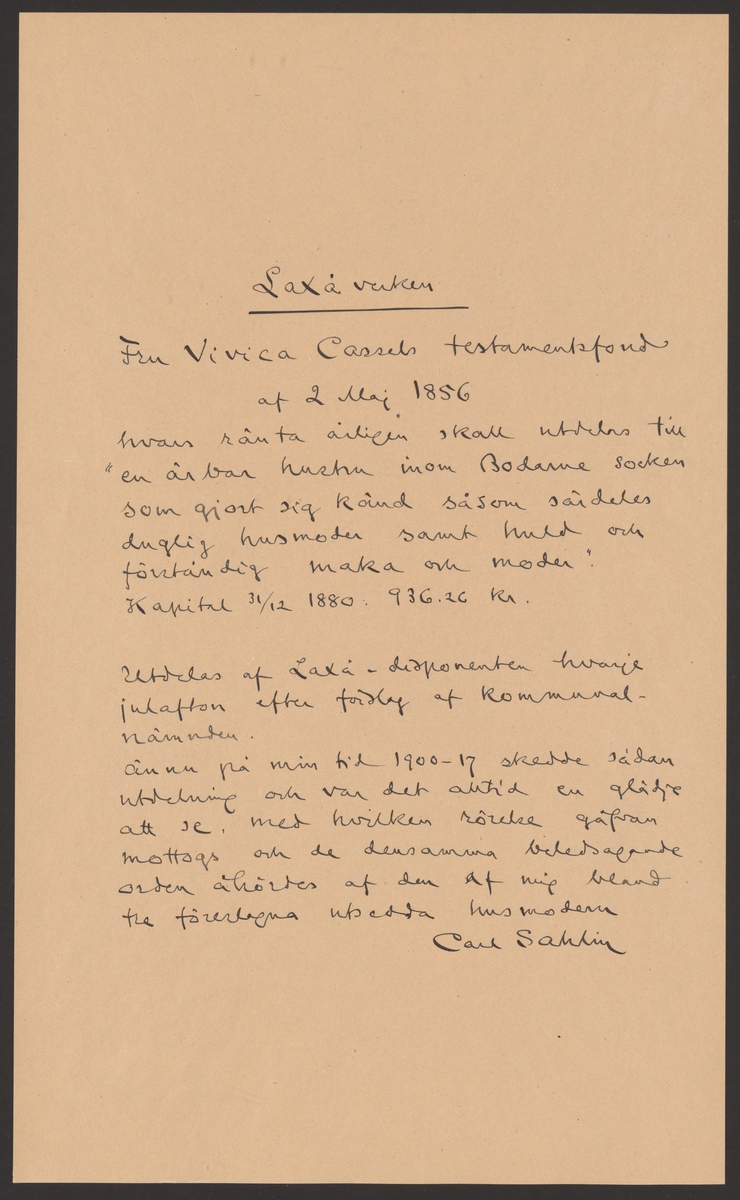 Laxå verken
Fru Vivica Cassels testamentsfond
af 2 Maj 1856
hvars ränta årligen skall utdelas till
"en ärbar hustru inom Bodarne socken
som gjort sig känd såsom särdeles
duglig husmoder samt huld och
förståndig maka och moder".
Kapital 31/12 1880: 936.26 kr.
Utdelas af Laxå-disponenten hvarje
julafton efter förslag af kommunal-
nämnden.
Ännu på min tid 1900-17 skedde sådan
utdelning och var det alltid en glädje
att se, med hvilken rörelse gåfvan
mottogs och de densamma beledsagande
orden åhördes af den af mig bland
tre föreslagna utsedda husmodern
Carl Sahlin